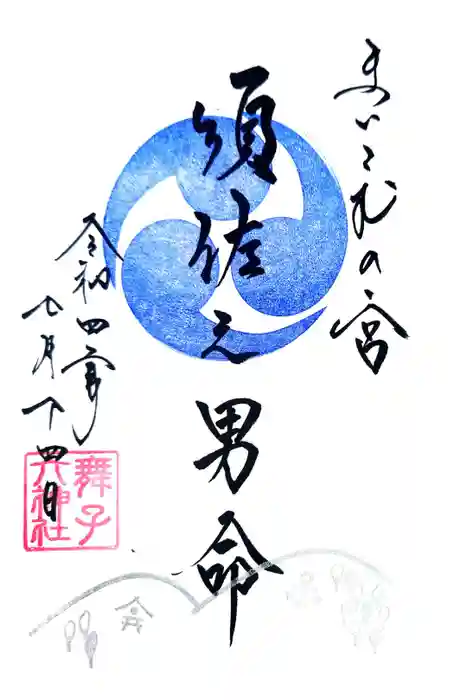 まいこ乃宮
須佐之男命
令和四年
七月十四日
舞子
六神社